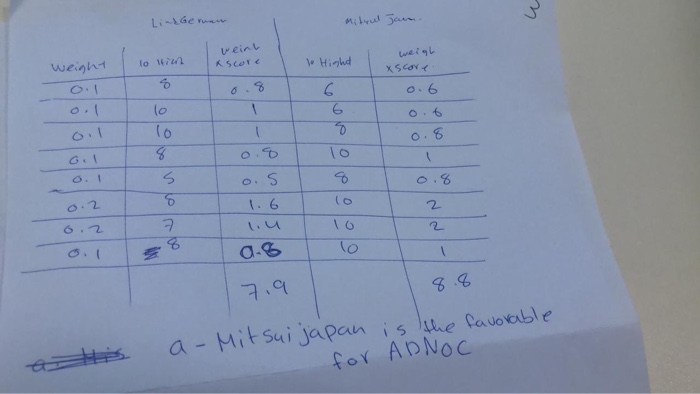 3
Linde German Mitsui Japan.
weight x score weight x score
Weight 10 Highest 10 Highest
0.1 8 0.8 6 0.6
0.1 10 1 6 0.6
0.1 10 1 8 0.8
0.1 8 0.8 10 1
0.1 5 0.5 8 0.8
0.2 8 1.6 10 2
0.2 7 1.4 10 2
0.1 8 0.8 10 1
7.9 8.8
a - Mitsui japan is the favorable
for ADNOC